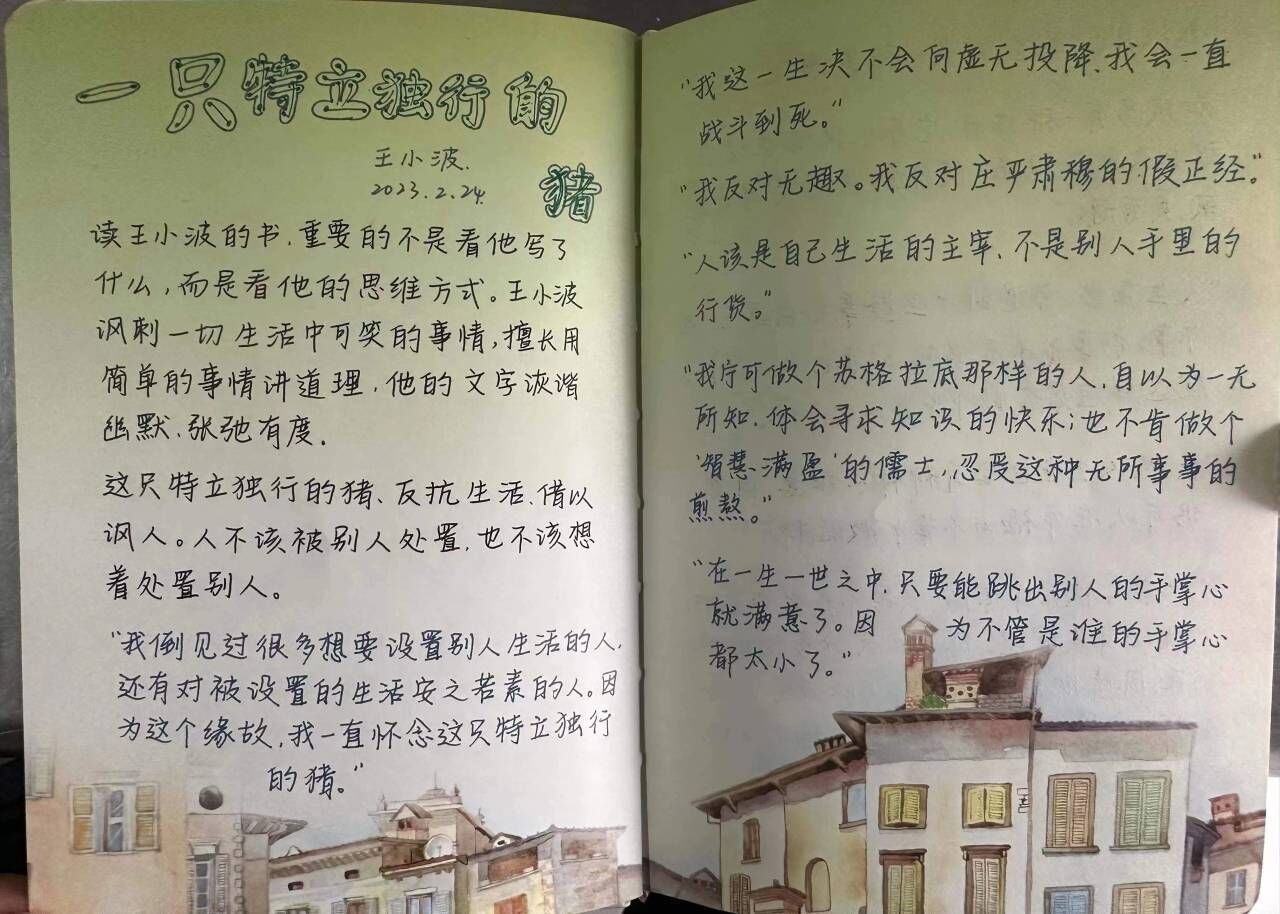 一只特立独行的
猪
王小波.
2023.2.24.
读王小波的书,重要的不是看他写了
什么,而是看他的思维方式。王小波
讽刺一切生活中可笑的事情,擅长用
简单的事情讲道理,他的文字诙谐
幽默、张弛有度.
这只特立独行的猪、反抗生活、借以
讽人。人不该被别人处置,也不该想
着处置别人。
"我倒见过很多想要设置别人生活的人,
还有对被设置的生活安之若素的人。因
为这个缘故,我一直怀念这只特立独行
的猪。"
"我这一生决不会向虚无投降、我会一直
战斗到死。"
"我反对无趣。我反对庄严肃穆的假正经."
"人该是自己生活的主宰、不是别人手里的
行货。"
"我宁可做个苏格拉底那样的人,自以为一无
所知,体会寻求知识的快乐;也不肯做个
'智慧满盈'的儒士,忍受这种无所事事的
煎熬。"
"在一生一世之中,只要能跳出别人的手掌心
就满意了。因 为不管是谁的手掌心
都太小了。"